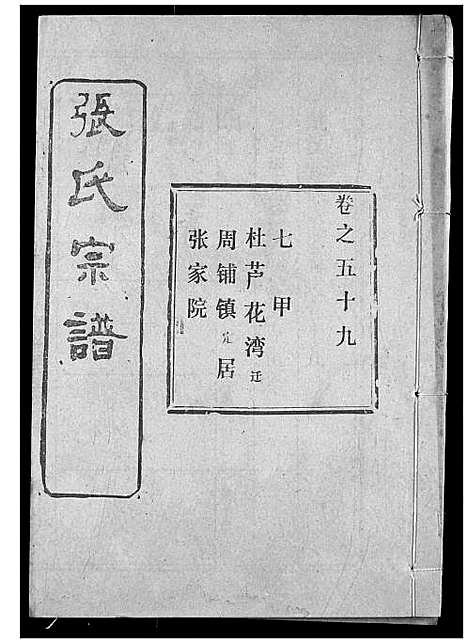 張氏宗譜
卷之五十九
七甲
杜芦花湾迁
周铺镇居
张家院